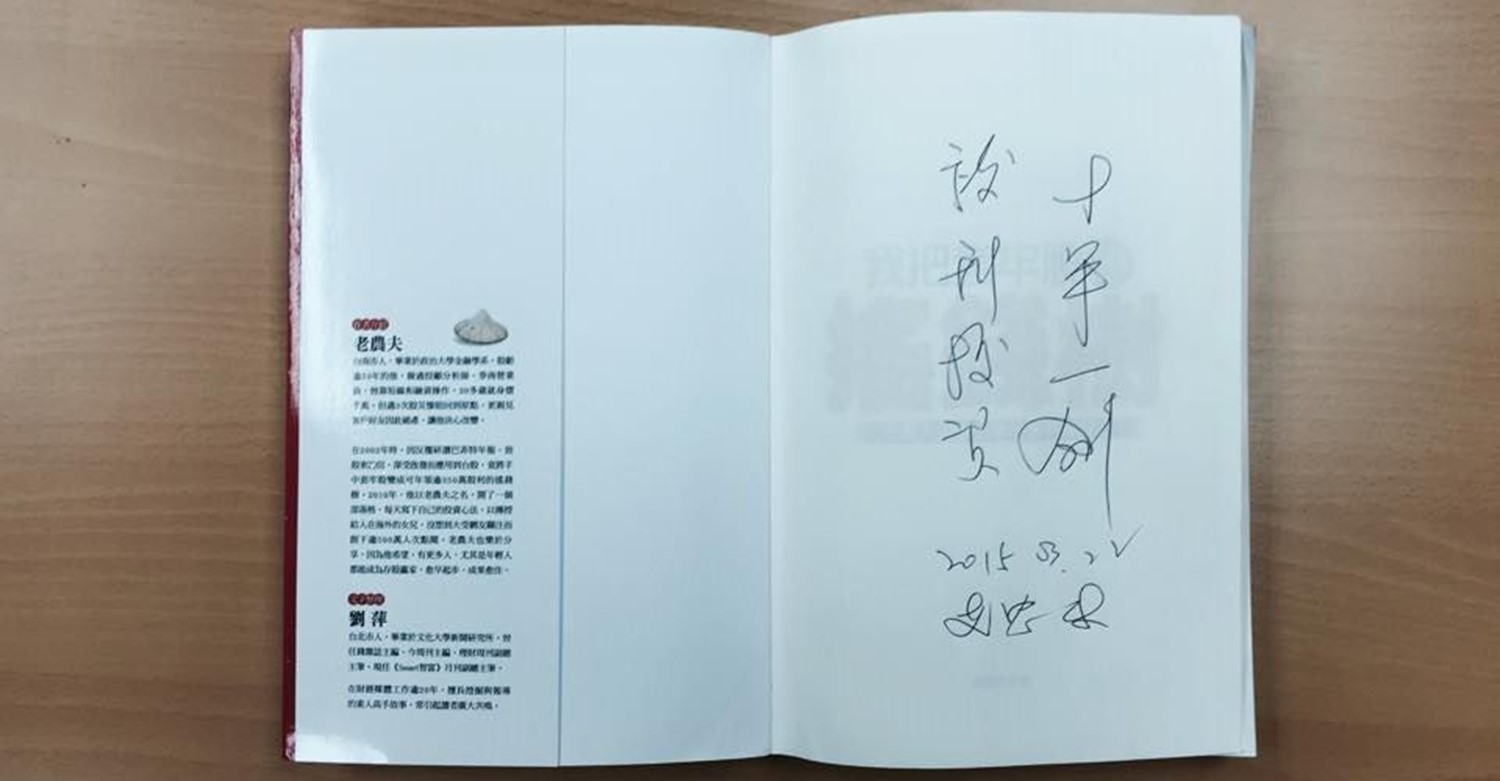 作者介紹
老農夫
台南市人，畢業於政治大學金融學系，股齡
逾20年的他，做過投顧分析師、券商營業
員，曾靠短線和融資操作，20多歲就身價
千萬，但遇3次股災慘賠回到原點，更親見
客戶好友因此破產，讓他決心改變。
在2002年時，因反覆研讀巴菲特年報、致
股東的信，深受啟發而應用到台股，竟將手
中套牢股變成可年領逾150萬股利的搖錢
樹。2010年，他以老農夫之名，開了一個
部落格，每天寫下自己的投資心法，以傳授
給人在海外的女兒，沒想到大受網友關注而
創下逾300萬人次點閱。老農夫也樂於分
享，因為他希望，有更多人，尤其是年輕人
都能成為存股贏家，愈早起步，成果愈佳。
文字整理
劉萍
台北市人，畢業於文化大學新聞研究所。曾
任錢雜誌主編、今周刊主編、理財周刊副總
主筆，現任《Smart智富》月刊副總主筆。
在財經媒體工作逾20年，擅長挖掘與報導
的素人高手故事，常引起讀者廣大共鳴。
十年一劍
股利投資
2015 03.22